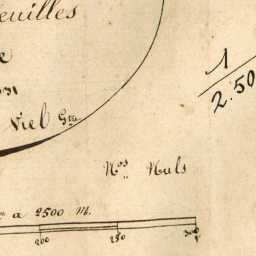 euilles
e
Viel Gme
1
2.50
Nos Nuls
a 2500 m.
200 250 300